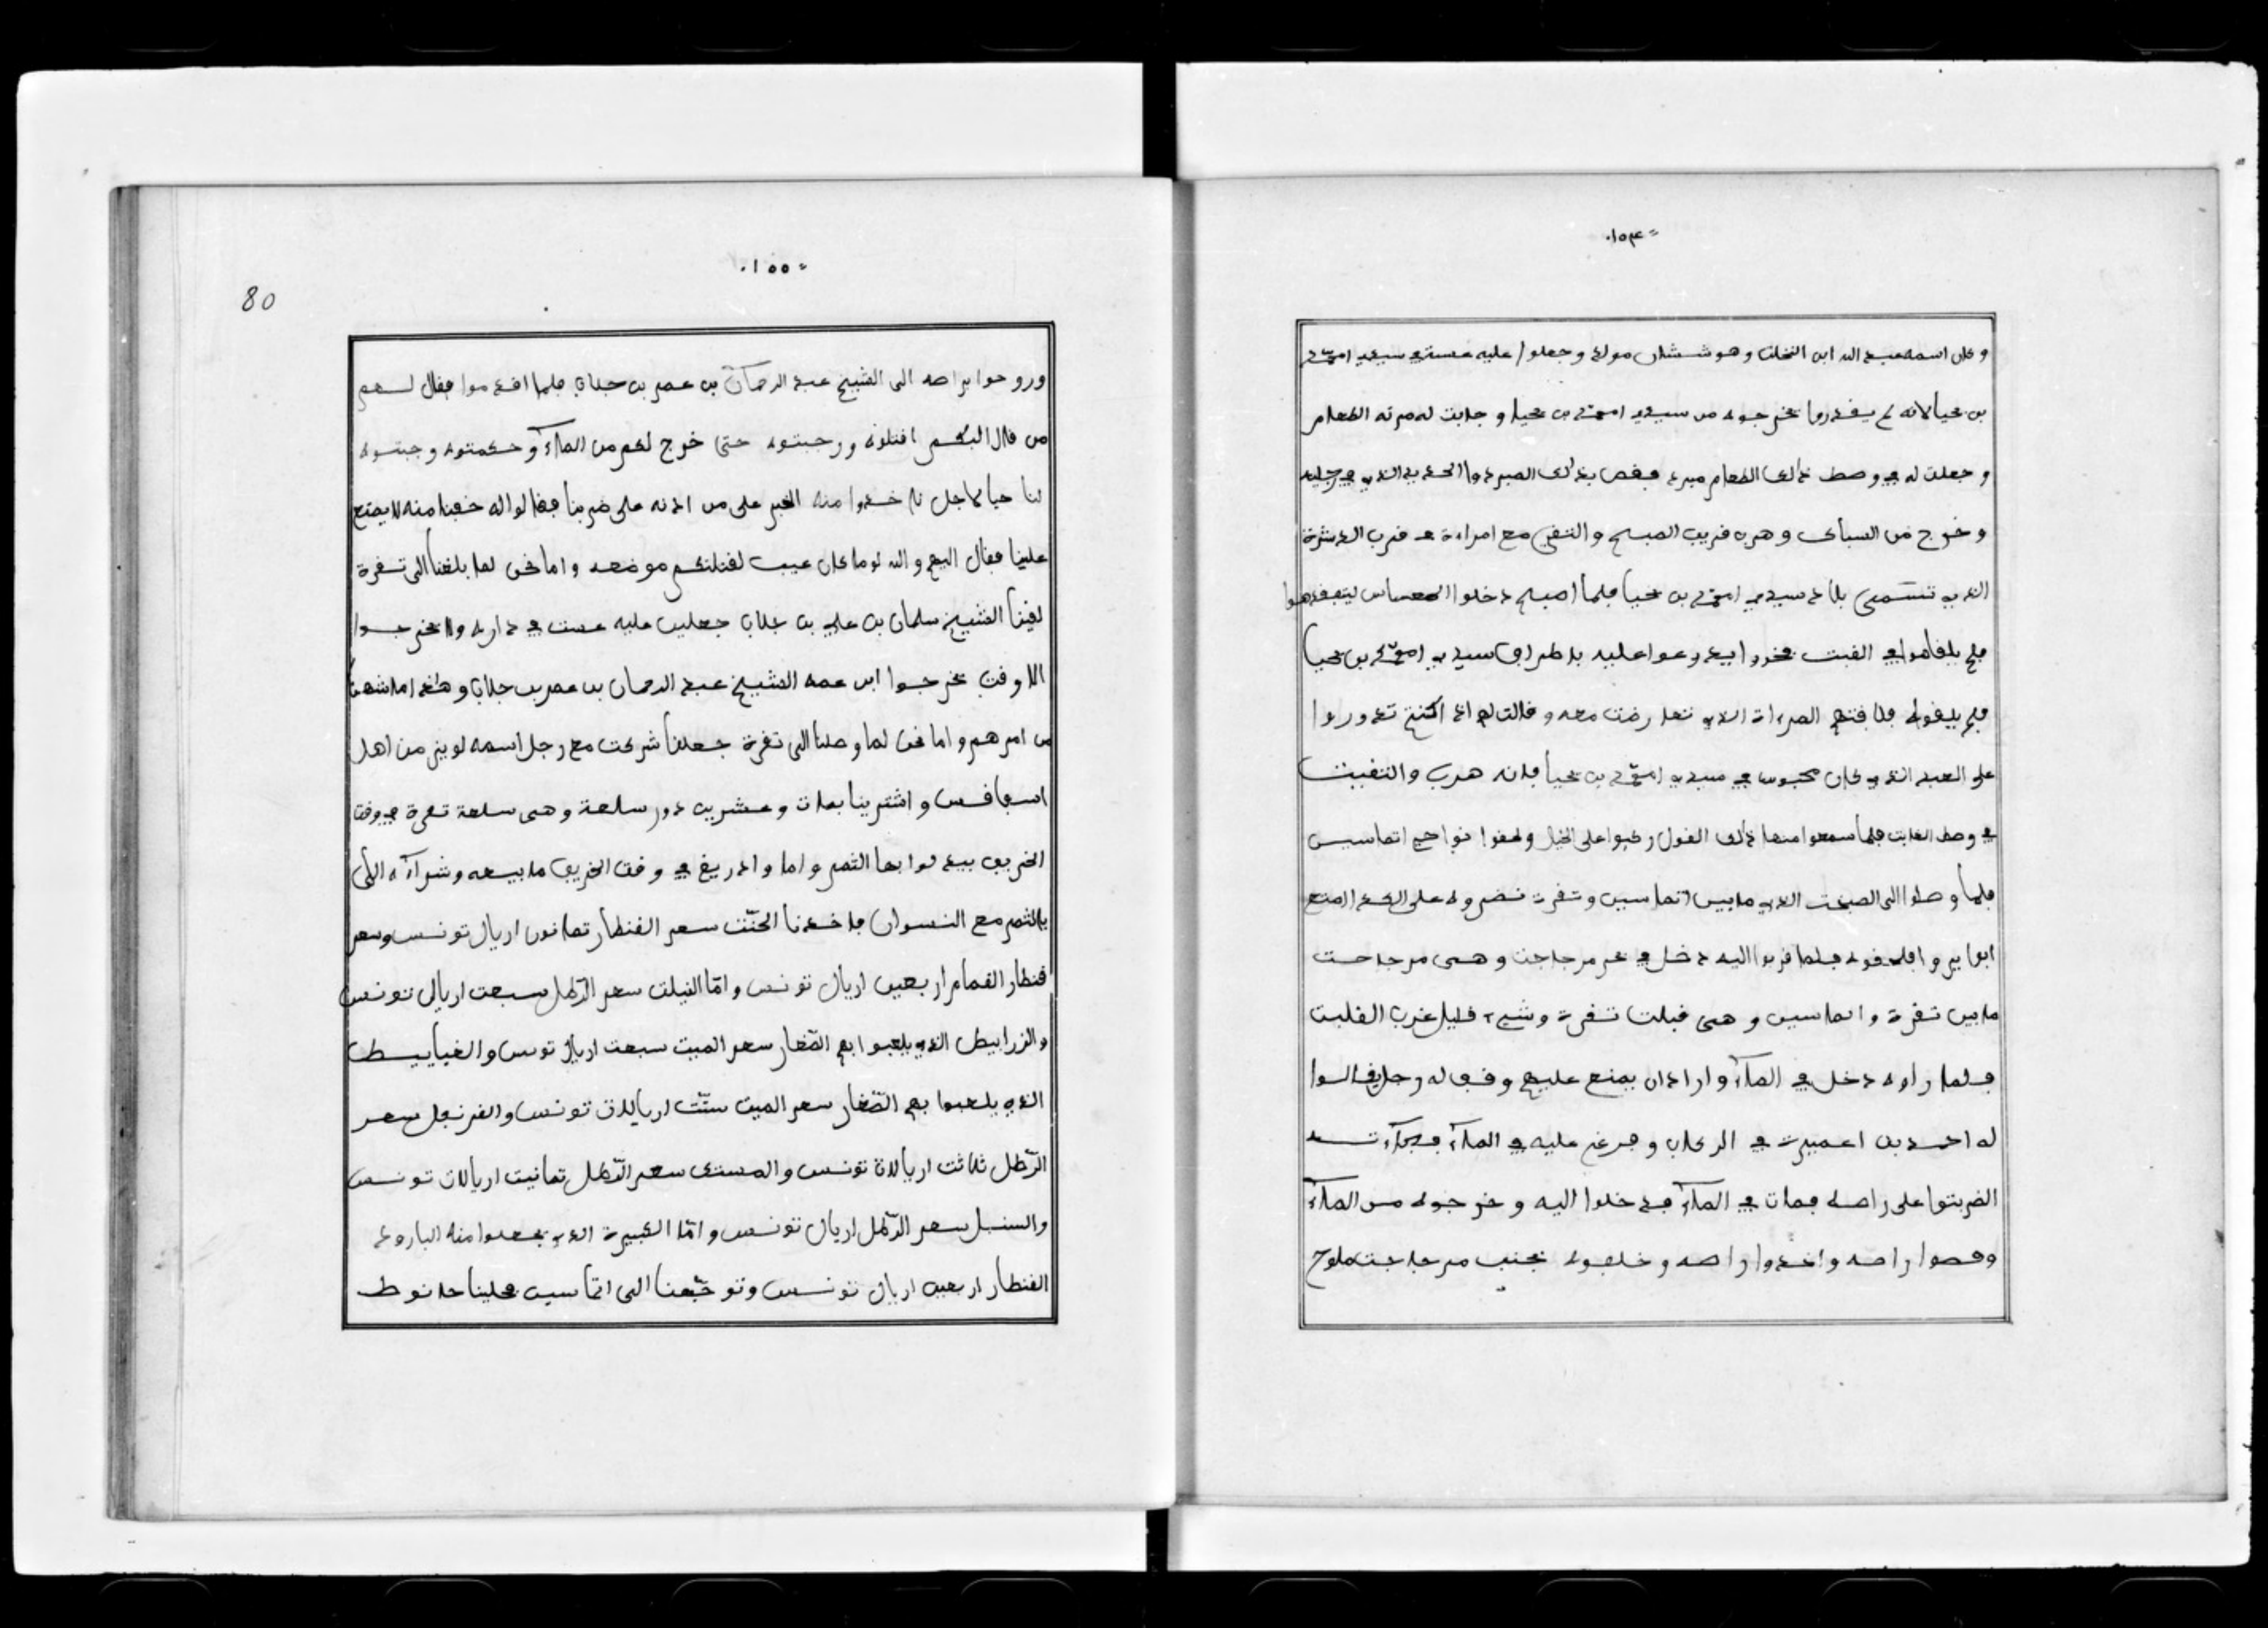 ١٥٤
وكان اسمه عبد الله ابن النخلت وهو ششان مولد وجعلوا عليه عست في سيدي امحمد
بن يحيا لانه لم يقدروا يخرجوه من سيدي امحمد بن يحيا وجابت له مرته الطعام
وجعلت له في وصط ذالك الطعام مبرد فقص بذالك المبرد الحديد الذي في رجليه
وخرج من السباك وهرب قريب الصبح والتقى مع امراءة قرب الدشرة
الذي تسمى بلاد سيدي امحمد بن يحيا فلما اصبح دخلوا العساس ليتفقدهوا
فلم يلقاهوا في القبت فخردوا يدوروا عليه بلطراف سيدي امحمد بن يحيا
فلم يلقوه فلاقتهم المراة الذي تعارضت معه وقالت لهم اذ اكنتم تدوروا
على العبد الذي كان محبوس في سيدي امحمد بن يحيا فانه هرب والتقيت
في وصط الغابت فلما سمعوا منها ذالك القول ركبوا على الخيل ولحقوا نواحي اتماسين
فلما وصلوا الى الصبخت الذي مابين اتماسين وتقرت نضروه على الحد المتع
ابوابير واقلحقوه فلما قربوا اليه دخل في بحر مرجاجت وهى مرجاجت
مابين تقرت واتماسين وهى قبلت تقرت وشيء قليل غرب القلبت
فلما راوه دخل في المآء واراد ان يمنع عليهم وقف له رجل يقالوا
له احمد بن اعميرت في الركاب وفرغ عليه في المآء فجآءتـه
الضربتوا على راصه فمات في المآء فدخلوا اليه وخرجوه من المآء
وقصوا راصه واخدوا راصه وخلفوه بجنب مرجاجت ملوح
١٥٥
80
وروحوا براصه الى الشيخ عبد الرحمان بن عمر بن جلاب فلما اقدموا فقال لهم
من قال لكم اقتلوه ورحبتوه حتى خرج لكم من المآء وحكمتوه وجبتوه
لنا حيا لاجل ناخدوا منه الخبر على من اذنه على ضربنا فقالوا اله خفنا منه لا يمنع
علينا فقال اليهم والله لو ما كان عيب لقتلتكم موضعه واما نحن لما بلغنا الى تقرة
لقينا الشيخ سلمان بن علي بن جلاب جعلين عليه عست في داره والا يخرجوا
الا وقت يخرجوا ابن عمه الشيخ عبد الرحمان بن عمر بن جلاب وهذا ما شهدنا
من امرهم واما نحن لما وصلنا الى تقرة جعلنا شركت مع رجل اسمه لويز من اهل
اسبافس واشترينا بمات وعشرين دور سلعة وهى سلعة تقرة في وقت
الخريف يبدلوا بها الثمر واما وادريغ في وقت الخريف ما بيعه وشرآءه الا
بالثمر مع النسوان فاخدنا الحنّت سعر القنطار ثمانون اريال تونس وسعر
قنطار القمام اربعين اريال تونس وامّا النيلت سعر الرّطل سبعت اريال تونس
والزرابيط الذي يلعبوا ابهم الصّغار سعر الميت سبعت اريال تونس والغيابيط
الذي يلعبوا بهم الصّغار سعر الميت ستّت اريالات تونس والقرنفل سعر
الرّطل ثلاثت اريالات تونس والمستكى سعر الرّطل ثمانيت اريالات تونس
والسنبل سعر الرّطل اريال تونس وامّا الكبيرت الذي يجعلوا منه البارود
القنطار اربعين اريال تونس وتوجّهنا الى اتماسين محلينا حانوط